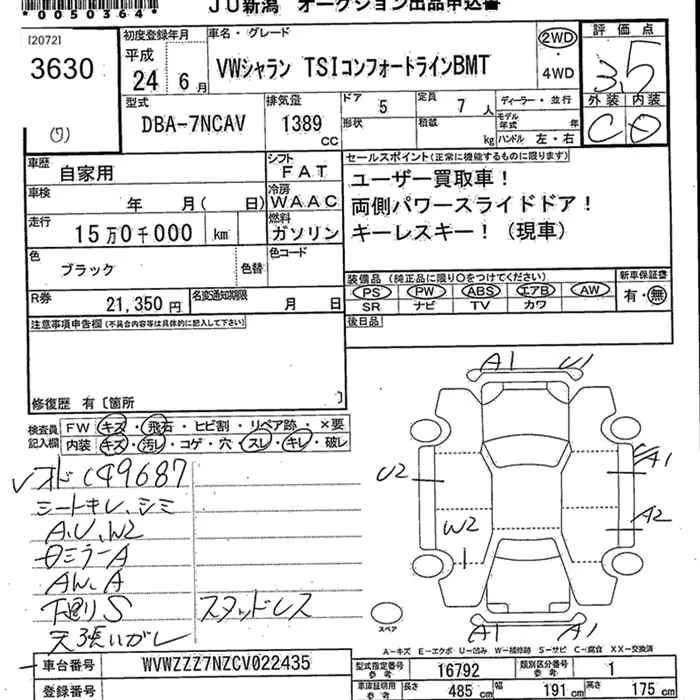 *0050364*
JU新潟 オークション出品申込書
[2072]
3630
(ワ)
初度登録年月
平成
24 6月
車名・グレード
VWシャラン TSIコンフォートラインBMT
2WD
・
4WD
評価点
3.5
外装 内装
C D
型式
DBA-7NCAV
排気量
1389
cc
ドア 5
形状
定員 7人
積載 kg
ディーラー・並行
モデル年式 年
ハンドル 左・右
車歴 自家用
シフト FAT
車検 年 月( 日)
冷房 WAAC
走行 15万0千000 km
燃料 ガソリン
色 ブラック
色替
色コード
R券 21,350円
名変通知期限 月 日
セールスポイント(正常に機能するものに限ります)
ユーザー買取車!
両側パワースライドドア!
キーレスキー!(現車)
装備品(純正品に限り○をつけてください)
PS PW ABS エアB AW
SR ナビ TV カワ
新車保証書
有・無
後日品
注意事項申告欄(不具合内容等は具体的に記入して下さい)
修復歴 有〔箇所 〕
検査員記入欄
FW キズ・飛石・ヒビ割・リペア跡・×要
内装 キズ・汚レ・コゲ・穴・スレ・キレ・破レ
シートキレ、シミ
A.U.W2
下廻りS スタッドレス
A1 U1
U2 A1
W2 A2
A1 A1
スペア
A-キズ E-エクボ U-凹み W-補修跡 S-サビ C-腐食 XX-交換済
車台番号 WVWZZZ7NZCV022435
登録番号
型式指定番号 参考 16792
類別区分番号 参考 1
車庫証明用 参考 長さ 485cm 幅 191cm 高さ 175cm